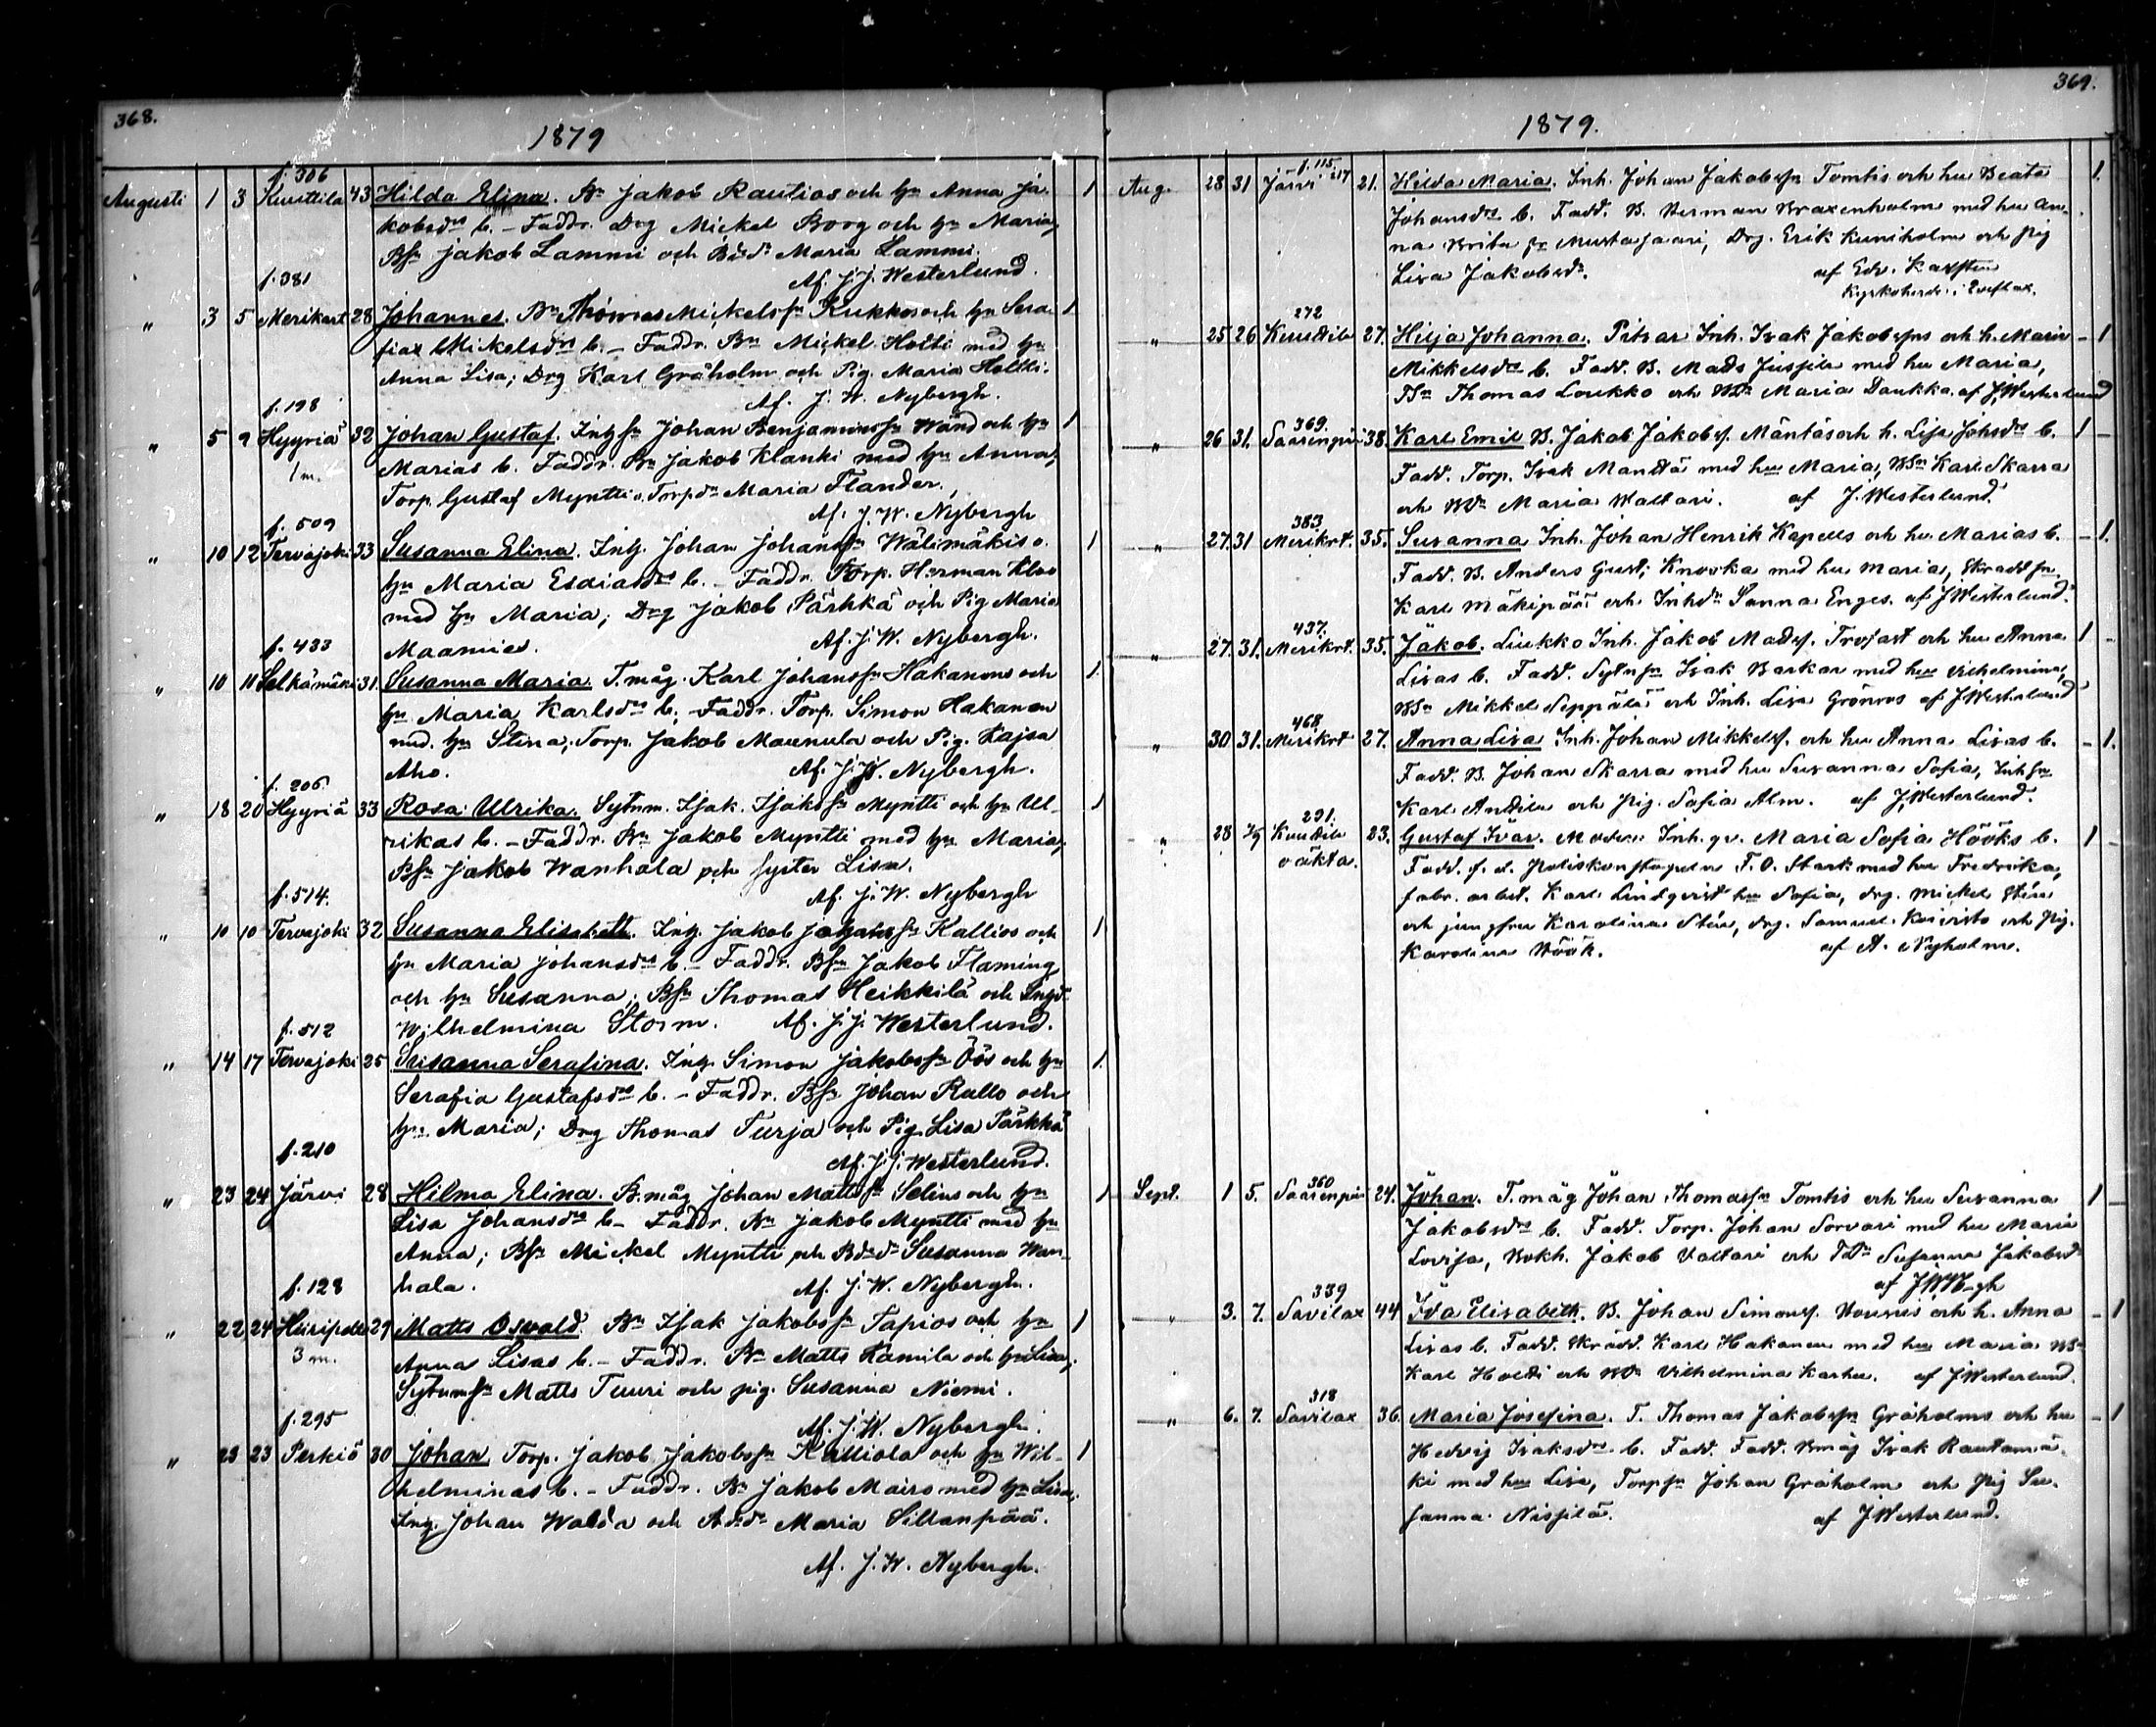 368.
1879
f. 306
Augusti 1 3 Kuuttila 43 Hilda Elina. Bn Jakob Rautios och hn Anna Ja- 1
kobsdrs b. - Faddr. Drg Mickel Borg och hn Maria;
Bsn Jakob Lammi och Bdr Maria Lammi.
f. 381 Af. J.J. Westerlund.
" 3 5 Merikart 28 Johannes. Bn Thomas Mickelssn Kukkos och hn Sera- 1
fias Mickelsdrs b. - Faddr. Bn Mickel Holti med hn
Anna Lisa; Drg Karl Gråholm och Pig. Maria Holtti.
f. 198 Af. J. W. Nybergh.
" 5 9 Hyyriä 32 Johan Gustaf. Inhsn Johan Benjaminssn Wänd och hn 1
1 m. Marias b. Faddr. Bn Jakob Klanki med hn Anna;
Torp. Gustaf Myntti o. Torpdr Maria Flander.
f. 509 Af. J. W. Nybergh
" 10 12 Tervajoki 33 Susanna Elina. Inh. Johan Johanssn Wälimäkis o. 1
hn Maria Esaiasdrs b. - Faddr. Torp. Herman Kloo
med hn Maria; Drg Jakob Pärkkä och Pig Maria
f. 433 Maamies. Af. J. W. Nybergh.
" 10 11 Selkämäki 31 Susanna Maria. T.måg. Karl Johanssn Hakanens och 1
hn Maria Karlsdrs b. - Faddr. Torp. Simon Hakanen
med. hn Stina; Torp. Jakob Maunula och Pig. Kajsa
Aho. Af. J. W. Nybergh.
f. 206
" 18 20 Hyyriä 33 Rosa Ulrika. Sytnm. Isak Isakssn Myntti och hn Ul- 1
rikas b. - Faddr. Bn Jakob Myntti med hn Maria;
Bsn Jakob Wanhala och syster Lisa.
f. 514. Af. J. W. Nybergh
" 10 10 Tervajoki 32 Susanna Elisabeth. Inh. Jakob Johanssn Kallios och 1
hn Maria Johansdrs b. - Faddr. Bsn Jakob Flaming
och hn Susanna; Bsn Thomas Heikkilä och Inhdr
f. 512 Wilhelmina Storm. Af. J.J. Westerlund.
" 14 17 Tervajoki 25 Susanna Serafina. Inh. Simon Jakobssn Öös och hn 1
Serafia Gustafsdrs b. - Faddr. Bsn Johan Kallo och
hn Maria; Drg Thomas Turja och Pig. Lisa Pärkkä
f. 210 Af. J.J. Westerlund.
" 23 24 Järvi 28 Hilma Elina. B.måg Johan Mattssn Selins och hn 1
Lisa Johansdrs b. - Faddr. Bn Jakob Myntti med hn
Anna; Bsn Mickel Myntti och Bdr Susanna Wan-
f. 128 hala. Af. J. W. Nybergh.
" 22 24 Hiiripelt 29 Matts Oswald. Bn Isak Jakobssn Tapios och hn 1
3 m. Anna Lisas b. - Faddr. Bn Matts Kamila och hn Lisa;
Sytnmsn Matts Tuuri och pig. Susanna Niemi.
f. 295 Af. J. W. Nybergh.
" 23 23 Perkiö 30 Johan Torp. Jakob Jakobssn Kalliola och hn Wil- 1
helminas b. - Faddr. Bn Jakob Mairs med hn Lisa;
Inh. Johan Walda och Bdr Maria Sillanpää.
Af. J. W. Nybergh.
369.
1879.
f. 115, 117
Aug. 28 31 Järvi 21. Hilda Maria. Inh. Johan Jakobssn Tomtis och hu Beata 1.
Johansdrs b. Fadd. B. Herman Braxenholm med hu An-
na Brita fr Mustasaari, Drg. Erik Kuniholm och Pig
Lisa Jakobsdr. af Edv. Karsten
Kyrkoherde i Qveflax.
272
" 25 26 Kuuttila 27. Hilja Johanna. Inh. Isak Jakobssns och h. Maria - 1
Mikkelsdrs b. Fadd. B. Mads Jussila med hu Maria,
Bsn Thomas Loukko och Bdr Maria Daukka. af J. Westerlund
369.
" 26 31. Saarenpää 38. Karl Emil B. Jakob Jakobss. Mäntäs och h. Lisa Johsdrs b. 1 -
Fadd. Torp. Isak Mantta med hu Maria, Bsn Karl Skarra
och Bdr Maria Waltari. af J. Westerlund.
383
" 27. 31 Merikrt. 35. Susanna Inh. Johan Henrik Kapells och hu Marias b. - 1.
Fadd. B. Anders Gust; Knoska med hu Maria, Skraddsn
Karl Mäkipää och Inhdr Sanna Enges. af J Westerlund.
437.
" 27. 31. Merikrt. 35. Jakob. Liukko Inh. Jakob Madss. Trofast och hu Anna 1 -
Lisas b. Fadd. Sytnsn Isak Barkar med hu Vilhelmina,
Bsn Mikkel Seppälä och Inh. Lisa Grönros af J Westerlund
468
" 30 31. Merikrt 27. Anna Lisa Inh. Johan Mikkelss. och hu Anna Lisas b. - 1.
Fadd. B. Johan Skarra med hu Susanna Sofia, Inhsn
Karl Andila och Pig. Sofia Alm. af J. Westerlund.
291.
" 28 7/9 Kuuttila 23. Gustaf Ivar. Modern Inh. qv. Maria Sofia Hööks b. 1 -
oäkta. Fadd. f. d. Poliskonstapeln F. O. Stark med hu Fredrika,
fabr. arbet. Karl Lindqvist hu Sofia, drg. Mickel Stén
och jungfru Karolina Stén, drg. Samuel Koivisto och Pig.
Karolina Höök. af A. Nyholm.
360
Sept. 1 5. Saarenpää 24. Johan. T.måg Johan Thomassn Tomtis och hu Susanna 1
Jakobsdrs b. Fadd. Torp. Johan Sorvari med hu Maria
Lovisa, Bokh. Jakob Valtari och Tdr Susanna Jakobsdr
af J W N-gh
339
" 3. 7. Savilax 44 Ida Elisabeth. B. Johan Simonss. och h. Anna - 1
Lisas b. Fadd. Skrädd. Karl Hakanen med hu Maria Bsn
Karl Holdi och Bdr Vilhelmina Karhu. af J Westerlund.
318
" 6. 7. Savilax 36. Maria Josefina. T. Thomas Jakobssn Gråholms och hu - 1
Hedvig Isaksdrs b. Fadd. Fadd. Bmåg Isak Rautamä-
ki med hu Lisa, Torpsn Johan Gråholm och Pig Su-
sanna Nissilä. af J Westerlund.